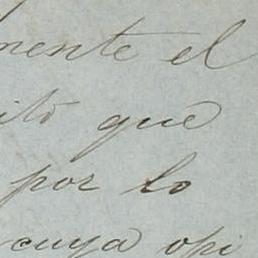 mente el
ito que
por lo
cuya opi